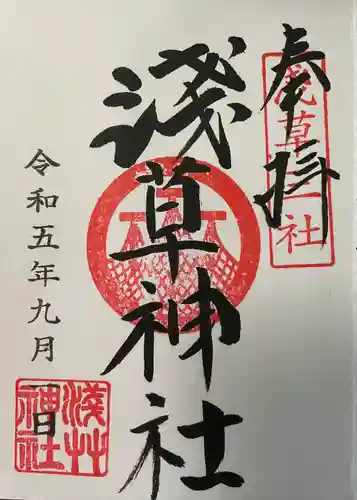 奉拝
浅草三社
淺草神社
令和五年九月一日
淺艸
神社